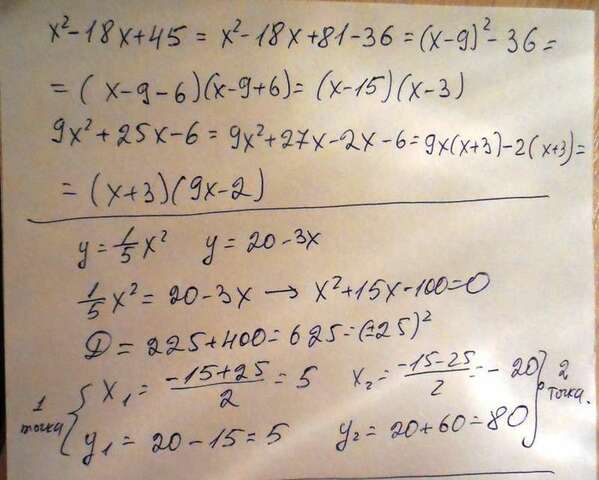 x²-18x+45 = x²-18x+81-36 = (x-9)²-36=
= (x-9-6)(x-9+6)= (x-15)(x-3)
9x²+25x-6 = 9x²+27x-2x-6=9x(x+3)-2(x+3)=
= (x+3)(9x-2)
y = 1/5 x² y = 20-3x
1/5 x² = 20-3x → x²+15x-100=0
D = 225+400=625=(±25)²
1 точка { x₁ = (-15+25)/2 = 5 x₂ = (-15-25)/2 = -20 } 2 точка.
y₁ = 20-15=5 y₂ = 20+60=80